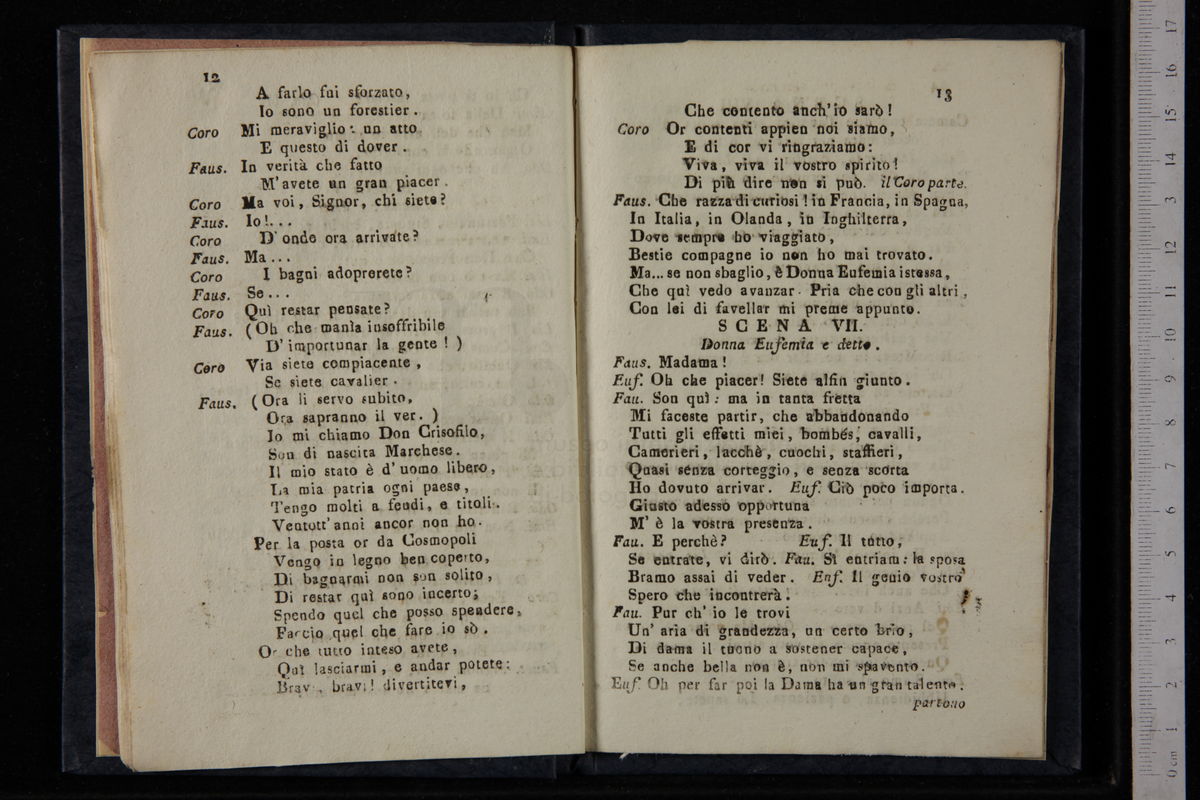 12
A farlo fui sforzato,
Io sono un forestier.
Coro Mi meraviglio: un atto
E questo di dover.
Faus. In verità che fatto
M'avete un gran piacer.
Coro Ma voi, Signor, chi siete?
Faus. Io!...
Coro D'onde ora arrivate?
Faus. Ma...
Coro I bagni adoprerete?
Faus. Se...
Coro Quì restar pensate?
Faus. (Oh che manìa insoffribile
D'importunar la gente! )
Coro Via siete compiacente,
Se siete cavalier.
Faus. (Ora li servo subito,
Ora sapranno il ver. )
Io mi chiamo Don Grisofilo,
Son di nascita Marchese.
Il mio stato è d'uomo libero,
La mia patria ogni paese,
Tengo molti a feudi, e titoli.
Ventott'anni ancor non ho.
Per la posta or da Cosmopoli
Vengo in legno ben coperto,
Di bagnarmi non son solito,
Di restar quì sono incerto;
Spendo quel che posso spendere,
Faccio quel che fare io sò.
Or che tutto inteso avete,
Quì lasciarmi, e andar potete:
Brav, bravi! divertitevi,
13
Che contento anch'io sarò!
Coro Or contenti appien noi siamo,
E di cor vi ringraziamo:
Viva, viva il vostro spirito!
Di più dire non si può. il Coro parte.
Faus. Che razza di curiosi! in Francia, in Spagna,
In Italia, in Olanda, in Inghilterra,
Dove sempre ho viaggiato,
Bestie compagne io non ho mai trovato.
Ma... se non sbaglio, è Donna Eufemia istessa,
Che quì vedo avanzar. Pria che con gli altri,
Con lei di favellar mi preme appunto.
SCENA VII.
Donna Eufemia e detto.
Faus. Madama!
Euf. Oh che piacer! Siete alfin giunto.
Fau. Son quì: ma in tanta fretta
Mi faceste partir, che abbandonando
Tutti gli effetti miei, bombés, cavalli,
Camerieri, lacchè, cuochi, staffieri,
Quasi senza corteggio, e senza scorta
Ho dovuto arrivar. Euf. Ciò poco importa.
Giusto adesso opportuna
M'è la vostra presenza.
Fau. E perchè? Euf. Il tutto,
Se entrate, vi dirò. Fau. Sì entriam: la sposa
Bramo assai di veder. Euf. Il genio vostro
Spero che incontrerà.
Fau. Pur ch'io le trovi
Un'aria di grandezza, un certo brio,
Di dama il tuono a sostener capace,
Se anche bella non è, non mi spavento.
Euf. Oh per far poi la Dama ha un gran talento.
partono
17
16
15
14
3
12
11
10
9
8
7
6
5
4
3
2
1
0 cm